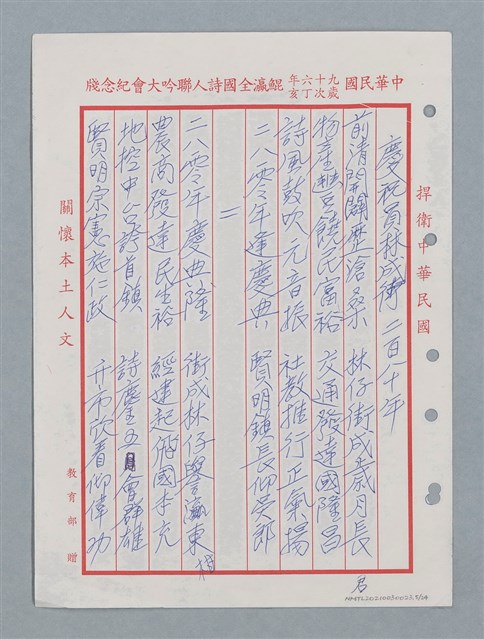 中華民國九十六年歲次丁亥鯤瀛全國詩人聯吟大會紀念牋
捍衛中華民國
慶祝員林成街二百八十年
前清開闢歷滄桑 林仔街成歲月長
物產豐饒民富裕 交通發達國隆昌
詩風鼓吹元音振 社教推行正氣揚
二八零年逢慶典 賢明鎮長仰吳郎
二
二八零年慶典隆 街成林仔譽瀛東
農商發達民生裕 經建起飛國本充
地控中台誇首鎮 詩壇五 會群雄
賢明宗憲施仁政 升市欣看仰偉功
關懷本土人文
教育部 贈
君
NMTL20210030023, 5/24